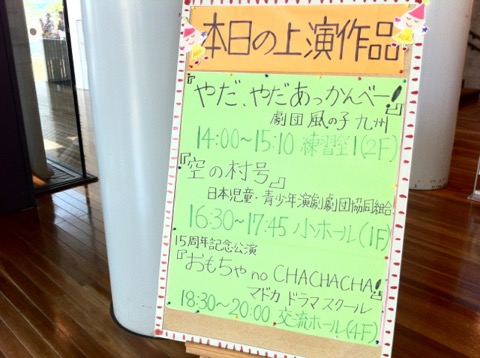 本日の上演作品
『やだ、やだあっかんべー!』
劇団 風の子 九州
14:00~15:10 練習室1(2F)
『空の村号』
日本児童・青少年演劇劇団協同組合
16:30~17:45 小ホール(1F)
15周年記念公演
『おもちゃ no CHACHACHA!』
マドカ ドラマ スクール
18:30~20:00 交流ホール(4F)